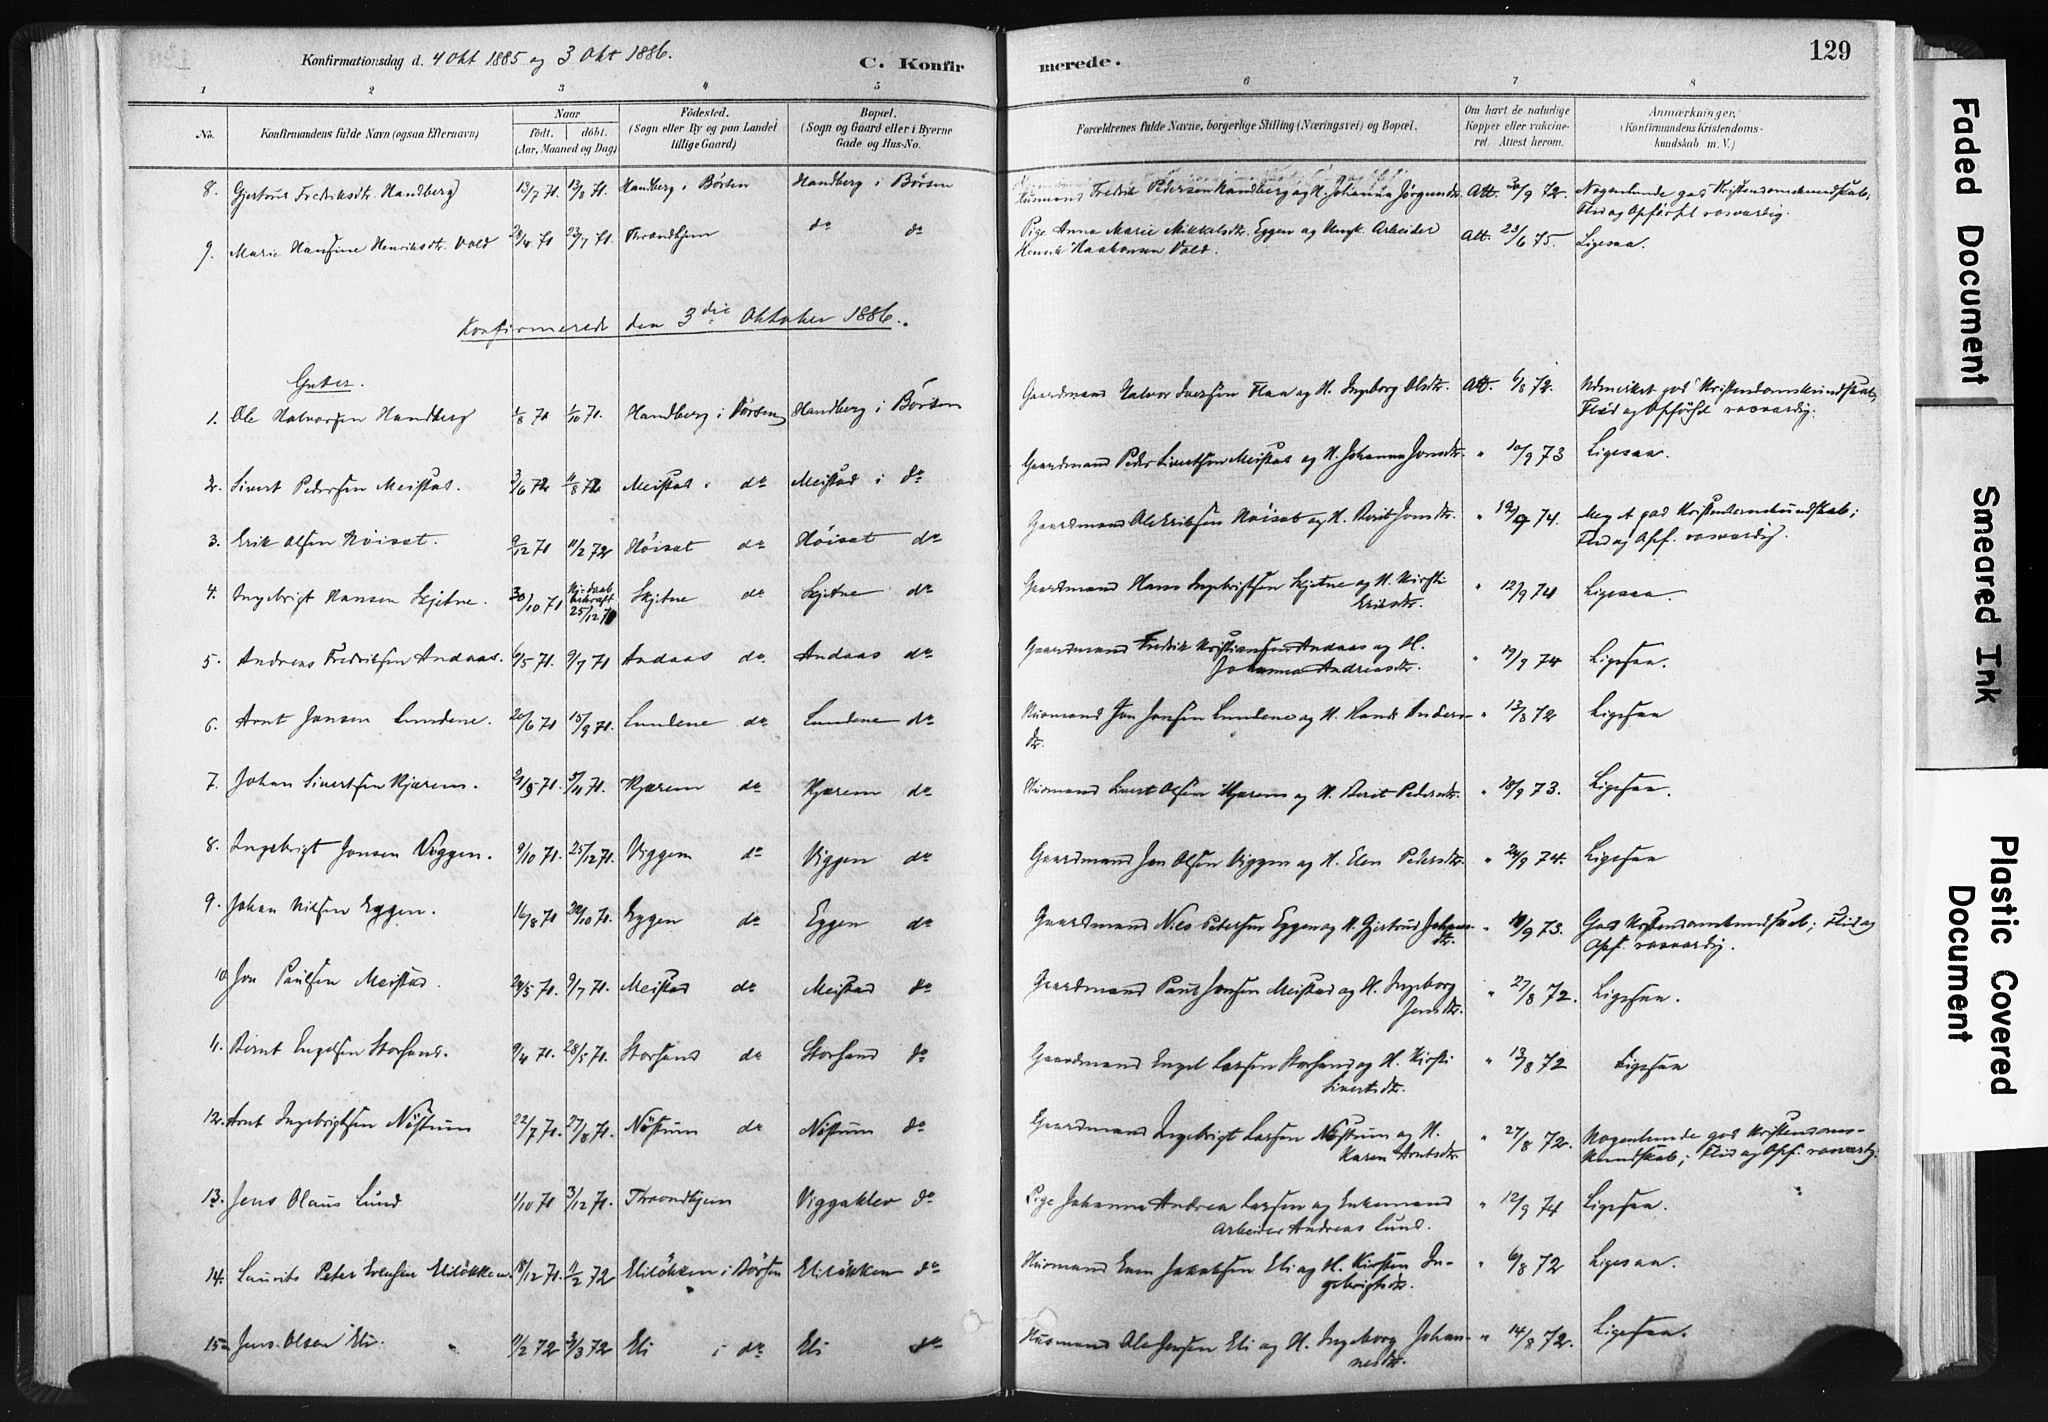 Konfirmationsdag d. 4 Okt 1885 og 3 Okt 1886.
C. Konfirmerede.
129
1 2 3 4 5 6 7 8
No.
Konfirmandens fulde Navn (ogsaa Efternavn)
Naar
født. døbt.
(Aar, Maaned og Dag)
Fødested.
(Sogn eller By og paa Landet
tillige Gaard)
Bopæl.
(Sogn og Gaard eller i Byerne
Gade og Hus-No.
Forældrenes fulde Navne, borgerlige Stilling (Næringsvei) og Bopæl.
Om havt de naturlige
Kopper eller vakcine-
ret. Attest herom.
Anmærkninger.
(Konfirmandens Kristendoms-
kundskab m. V.)
8. Gjertrud Fredriksdtr. Handberg 13/7 71. 13/8 71. Handberg i Børsen Handberg i Børsen Husmand Fredrik Pedersen Handberg og H. Johanna Jørgensdtr. Att. 30/9 72. Nogenlunde god Kristendomskundskab,
Flid og Opførsel rosværdig.
9. Marie Hansine Henriksdtr. Vold 28/4 71 23/7 71. Throndhjem do do Pige Anna Marie Mikkelsdtr. Eggen og Ungk. Arbeider
Henrik Haakonsen Vold. Att. 23/6 75. Ligesaa.
Konfirmerede den 3die Oktober 1886.
Gutter.
1. Ole Halvorsen Handberg 1/8 71 1/10 71. Handberg i Børsen Handberg i Børsen Gaardmand Halvor Iversen Flaa og H. Ingeborg Olsdtr. Att. 6/8 72. Udmerket god Kristendomskundskab,
Flid og Opførsel rosværdig.
2. Sivert Pedersen Meistad. 3/6 72 11/8 72 Meistad i do Meistad i do Gaardmand Peder Sivertsen Meistad og H. Johanna Jonsdtr. " 10/9 73 Ligesaa.
3. Erik Olsen Høiset. 9/12 71 11/2 72 Høiset do Høiset do Gaardmand Ole Eriksen Høiset og H. Berit Jonsdtr. " 12/9 74. Meget god Kristendomskundskab;
Flid og Opf. rosværdig.
4. Ingebrigt Hansen Skjetne. 30/10 71 Hj-daab
bekræft
25/12 71 Skjetne do Skjetne do Gaardmand Hans Ingebrigtsen Skjetne og H. Kirsti
Eriksdtr. " 12/9 74 Ligesaa.
5. Andreas Fredriksen Andaas. 6/5 71. 9/7 71 Andaas do. Andaas do Gaardmand Fredrik Kristiansen Andaas og H.
Johanna Andreasdtr. " 12/9 74 Ligesaa.
6. Arnt Jonsen Lundene. 20/6 71 15/9 71. Lundene do. Lundene do Husmand Jon Jonsen Lundene og H. Randi Anders-
dtr. " 13/8 72 Ligesaa
7. Johan Sivertsen Kjærem. 71. 5/11 71. Kjærem do Kjærem do Husmand Sivert Olsen Kjærem og H. Berit Pedersdtr. " 10/9 73. Ligesaa.
8. Ingebrigt Jonsen Viggen. 9/10 71. 25/12 71. Viggen do Viggen do Gaardmand Jon Olsen Viggen og H. Elen Pedersdtr. " 24/9 74. Ligesaa
9. Johan Nilsen Eggen. 16/8 71 29/10 71. Eggen do Eggen do Gaardmand Nils Petersen Eggen og H. Gjertrud Johans-
dtr. " 10/9 73. God Kristendomskundskab; Flid og
Opf. rosværdig.
10. Jon Paulsen Meistad. 24/5 71. 9/7 71. Meistad do Meistad do Gaardmand Paul Jonsen Meistad og H. Ingeborg
Jensdtr. " 27/8 72. Ligesaa.
11. Bernt Engelsen Storsand. 9/4 71. 28/5 71. Storsand do Storsand do Gaardmand Engel Larsen Storsand og H. Kirsti
Sivertsdtr. " 13/8 72 Ligesaa
12. Arnt Ingebrigtsen Nøstum 22/7 71. 27/8 71. Nøstum do Nøstum do Gaardmand Ingebrigt Larsen Nøstum og H.
Karen Arntsdtr. " 27/8 72. Nogenlunde god Kristendoms-
kundskab; Flid og Opf. rosværdig.
13. Jens Olaus Lund 1/10 71 3/12 71. Throndhjem Viggaklev do Pige Johanna Andrea Larsen og Enkemand
Arbeider Andreas Lund. " 12/9 74 Ligesaa.
14. Laurits Peter Evensen Eliløkken. 18/12 71. 11/2 72 Eliløkken i Børsen Eliløkken do Husmand Even Jakobsen Eli og H. Kirsten In-
gebrigtsdtr. " 6/8 72 Ligesaa.
15 Jens Olsen Eli. 11/2 72 3/3 72 Eli i do Eli do Husmand Ole Jensen Eli og H. Ingeborg Johan-
nesdtr. " 14/8 72. Ligesaa.
Faded Document
Smeared Ink
Plastic Covered
Document